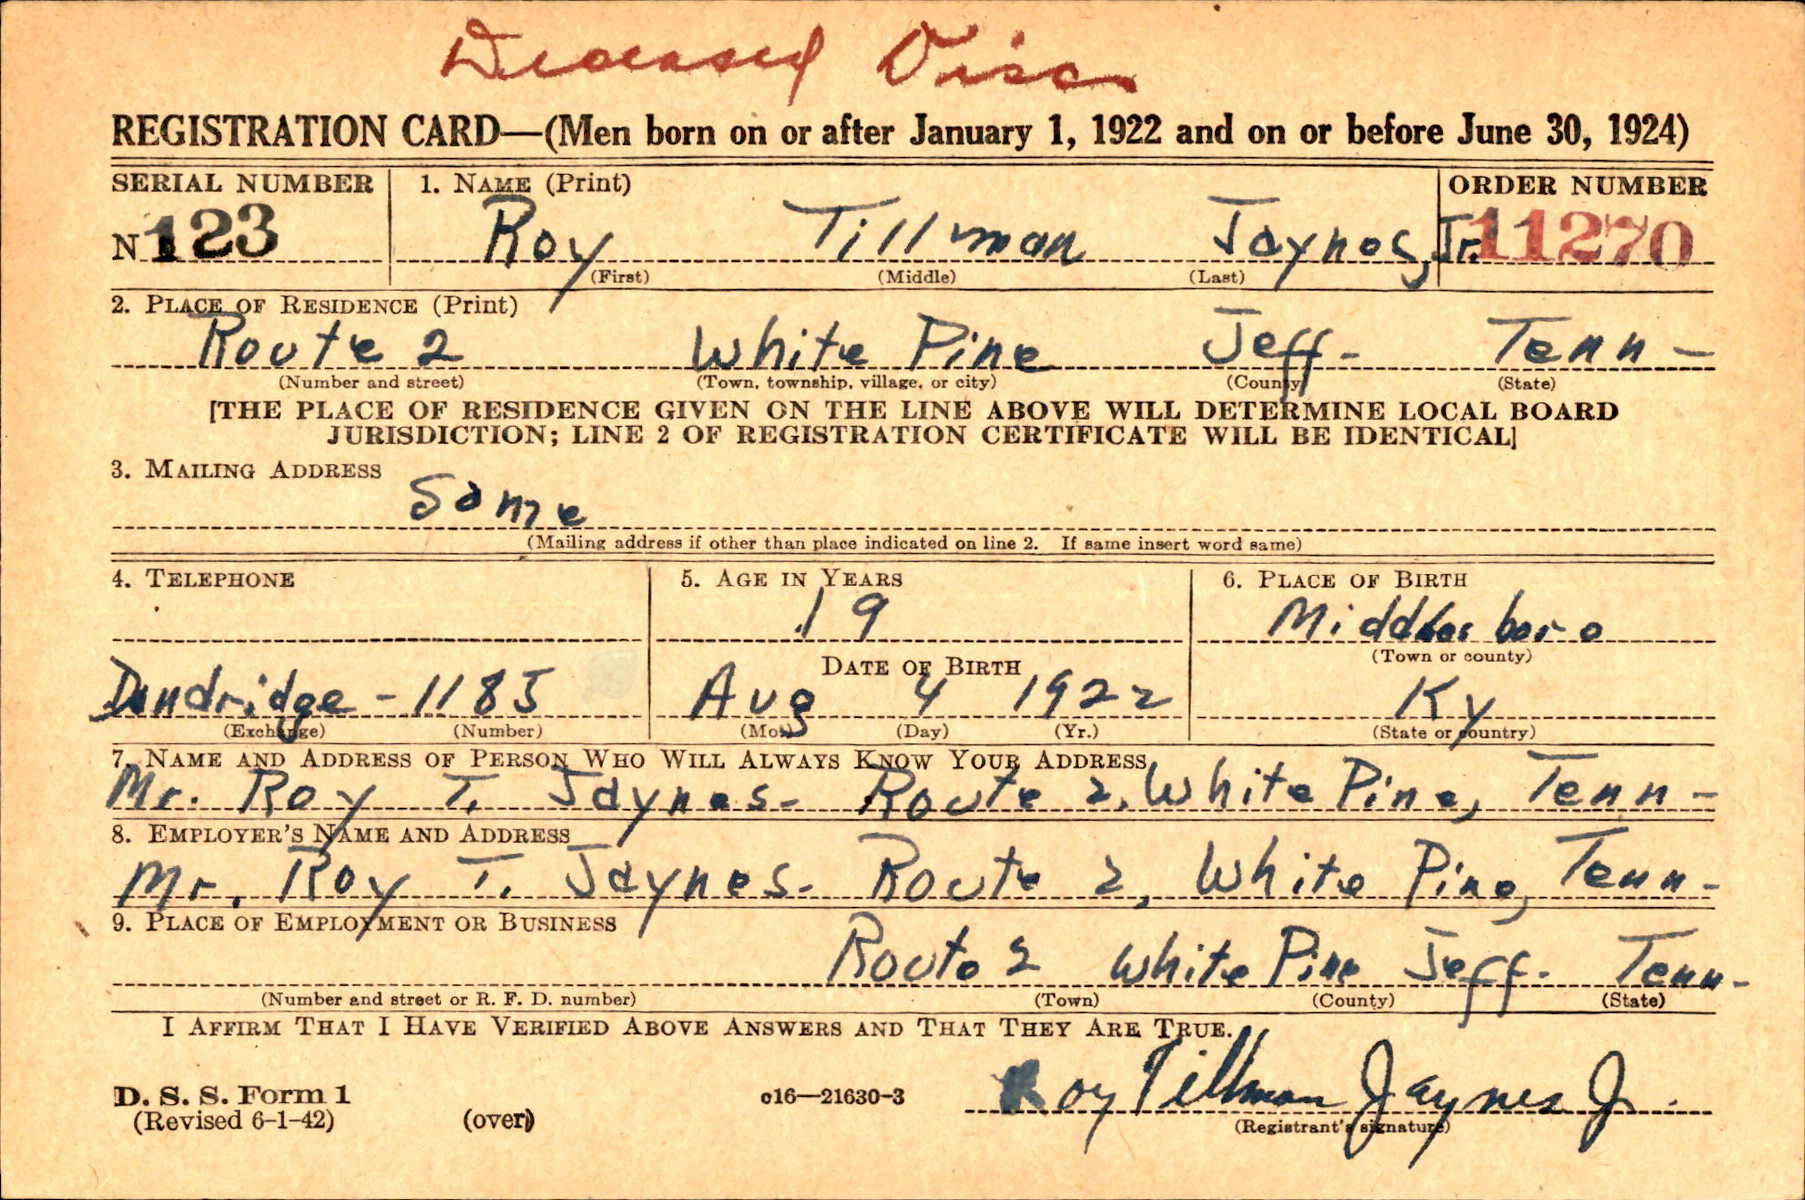 Deceased Disc
REGISTRATION CARD—(Men born on or after January 1, 1922 and on or before June 30, 1924)
SERIAL NUMBER 1. NAME (Print) ORDER NUMBER
N 123 Roy Tillman Jaynes, Jr. 11270
(First) (Middle) (Last)
2. PLACE OF RESIDENCE (Print)
Route 2 White Pine Jeff- Tenn-
(Number and street) (Town, township, village, or city) (County) (State)
[THE PLACE OF RESIDENCE GIVEN ON THE LINE ABOVE WILL DETERMINE LOCAL BOARD
JURISDICTION; LINE 2 OF REGISTRATION CERTIFICATE WILL BE IDENTICAL]
3. MAILING ADDRESS
Same
(Mailing address if other than place indicated on line 2. If same insert word same)
4. TELEPHONE 5. AGE IN YEARS 6. PLACE OF BIRTH
19 Middlesboro
(Town or county)
DATE OF BIRTH
Dandridge - 1185 Aug 4 1922 Ky
(Exchange) (Number) (Mo.) (Day) (Yr.) (State or country)
7. NAME AND ADDRESS OF PERSON WHO WILL ALWAYS KNOW YOUR ADDRESS
Mr. Roy T. Jaynes- Route 2, White Pine, Tenn-
8. EMPLOYER'S NAME AND ADDRESS
Mr. Roy T. Jaynes- Route 2, White Pine, Tenn-
9. PLACE OF EMPLOYMENT OR BUSINESS
Route 2 White Pine Jeff- Tenn-
(Number and street or R. F. D. number) (Town) (County) (State)
I AFFIRM THAT I HAVE VERIFIED ABOVE ANSWERS AND THAT THEY ARE TRUE.
Roy Tillman Jaynes Jr.
D. S. S. Form 1
(Revised 6-1-42) (over) c16—21630-3
(Registrant's signature)